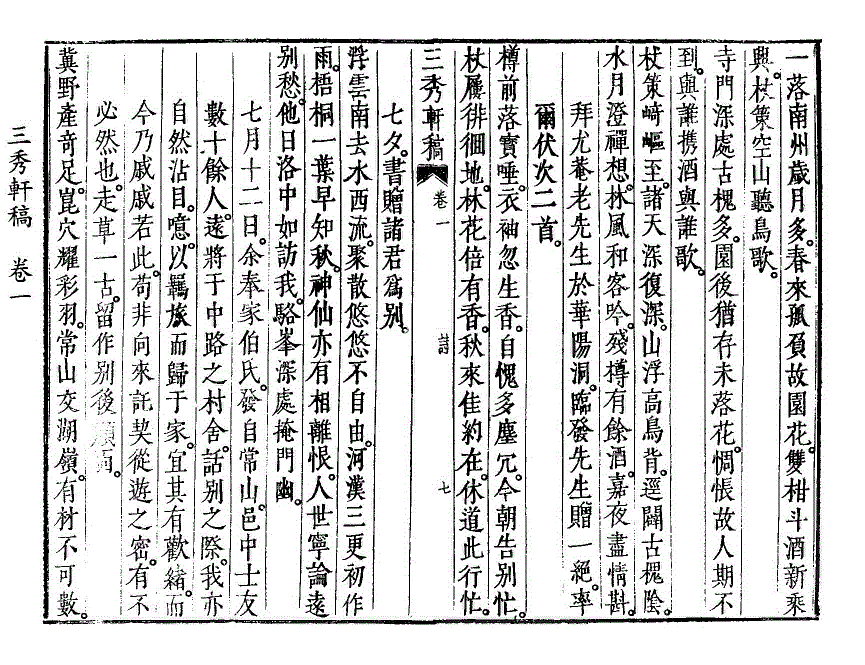 一落南州歲月多。春來孤負故園花。雙柑斗酒新乘
興。杖策空山聽鳥歌。
寺門深處古槐多。園後猶存未落花。惆悵故人期不
到。與誰携酒與誰歌。
杖策崎嶇至。諸天深復深。山浮高鳥背。逕闢古槐陰。
水月澄禪想。林風和客吟。殘樽有餘酒。嘉夜盡情斟。
拜尤菴老先生於華陽洞。臨發先生贈一絶。率
爾伏次二首。
樽前落寶唾。衣袖忽生香。自愧多塵冗。今朝告別忙。
杖屨徘徊地。林花倍有香。秋來佳約在。休道此行忙。
三秀軒稿 卷一 詩 七
七夕。書贈諸君爲別。
浮雲南去水西流。聚散悠悠不自由。河漢三更初作
雨。梧桐一葉早知秋。神仙亦有相離恨。人世寧論遠
別愁。他日洛中如訪我。駱峯深處掩門幽。
七月十二日。余奉家伯氏。發自常山。邑中士友
數十餘人。遠將于中路之村舍。話別之際。我亦
自然沾目。噫。以羈旅而歸于家。宜其有歡緖。而
今乃戚戚若此。苟非向來託契從遊之密。有不
必然也。走草一古。留作別後顔面。
冀野產奇足。崑穴耀彩羽。常山交湖嶺。有材不可數。
三秀軒稿 卷一